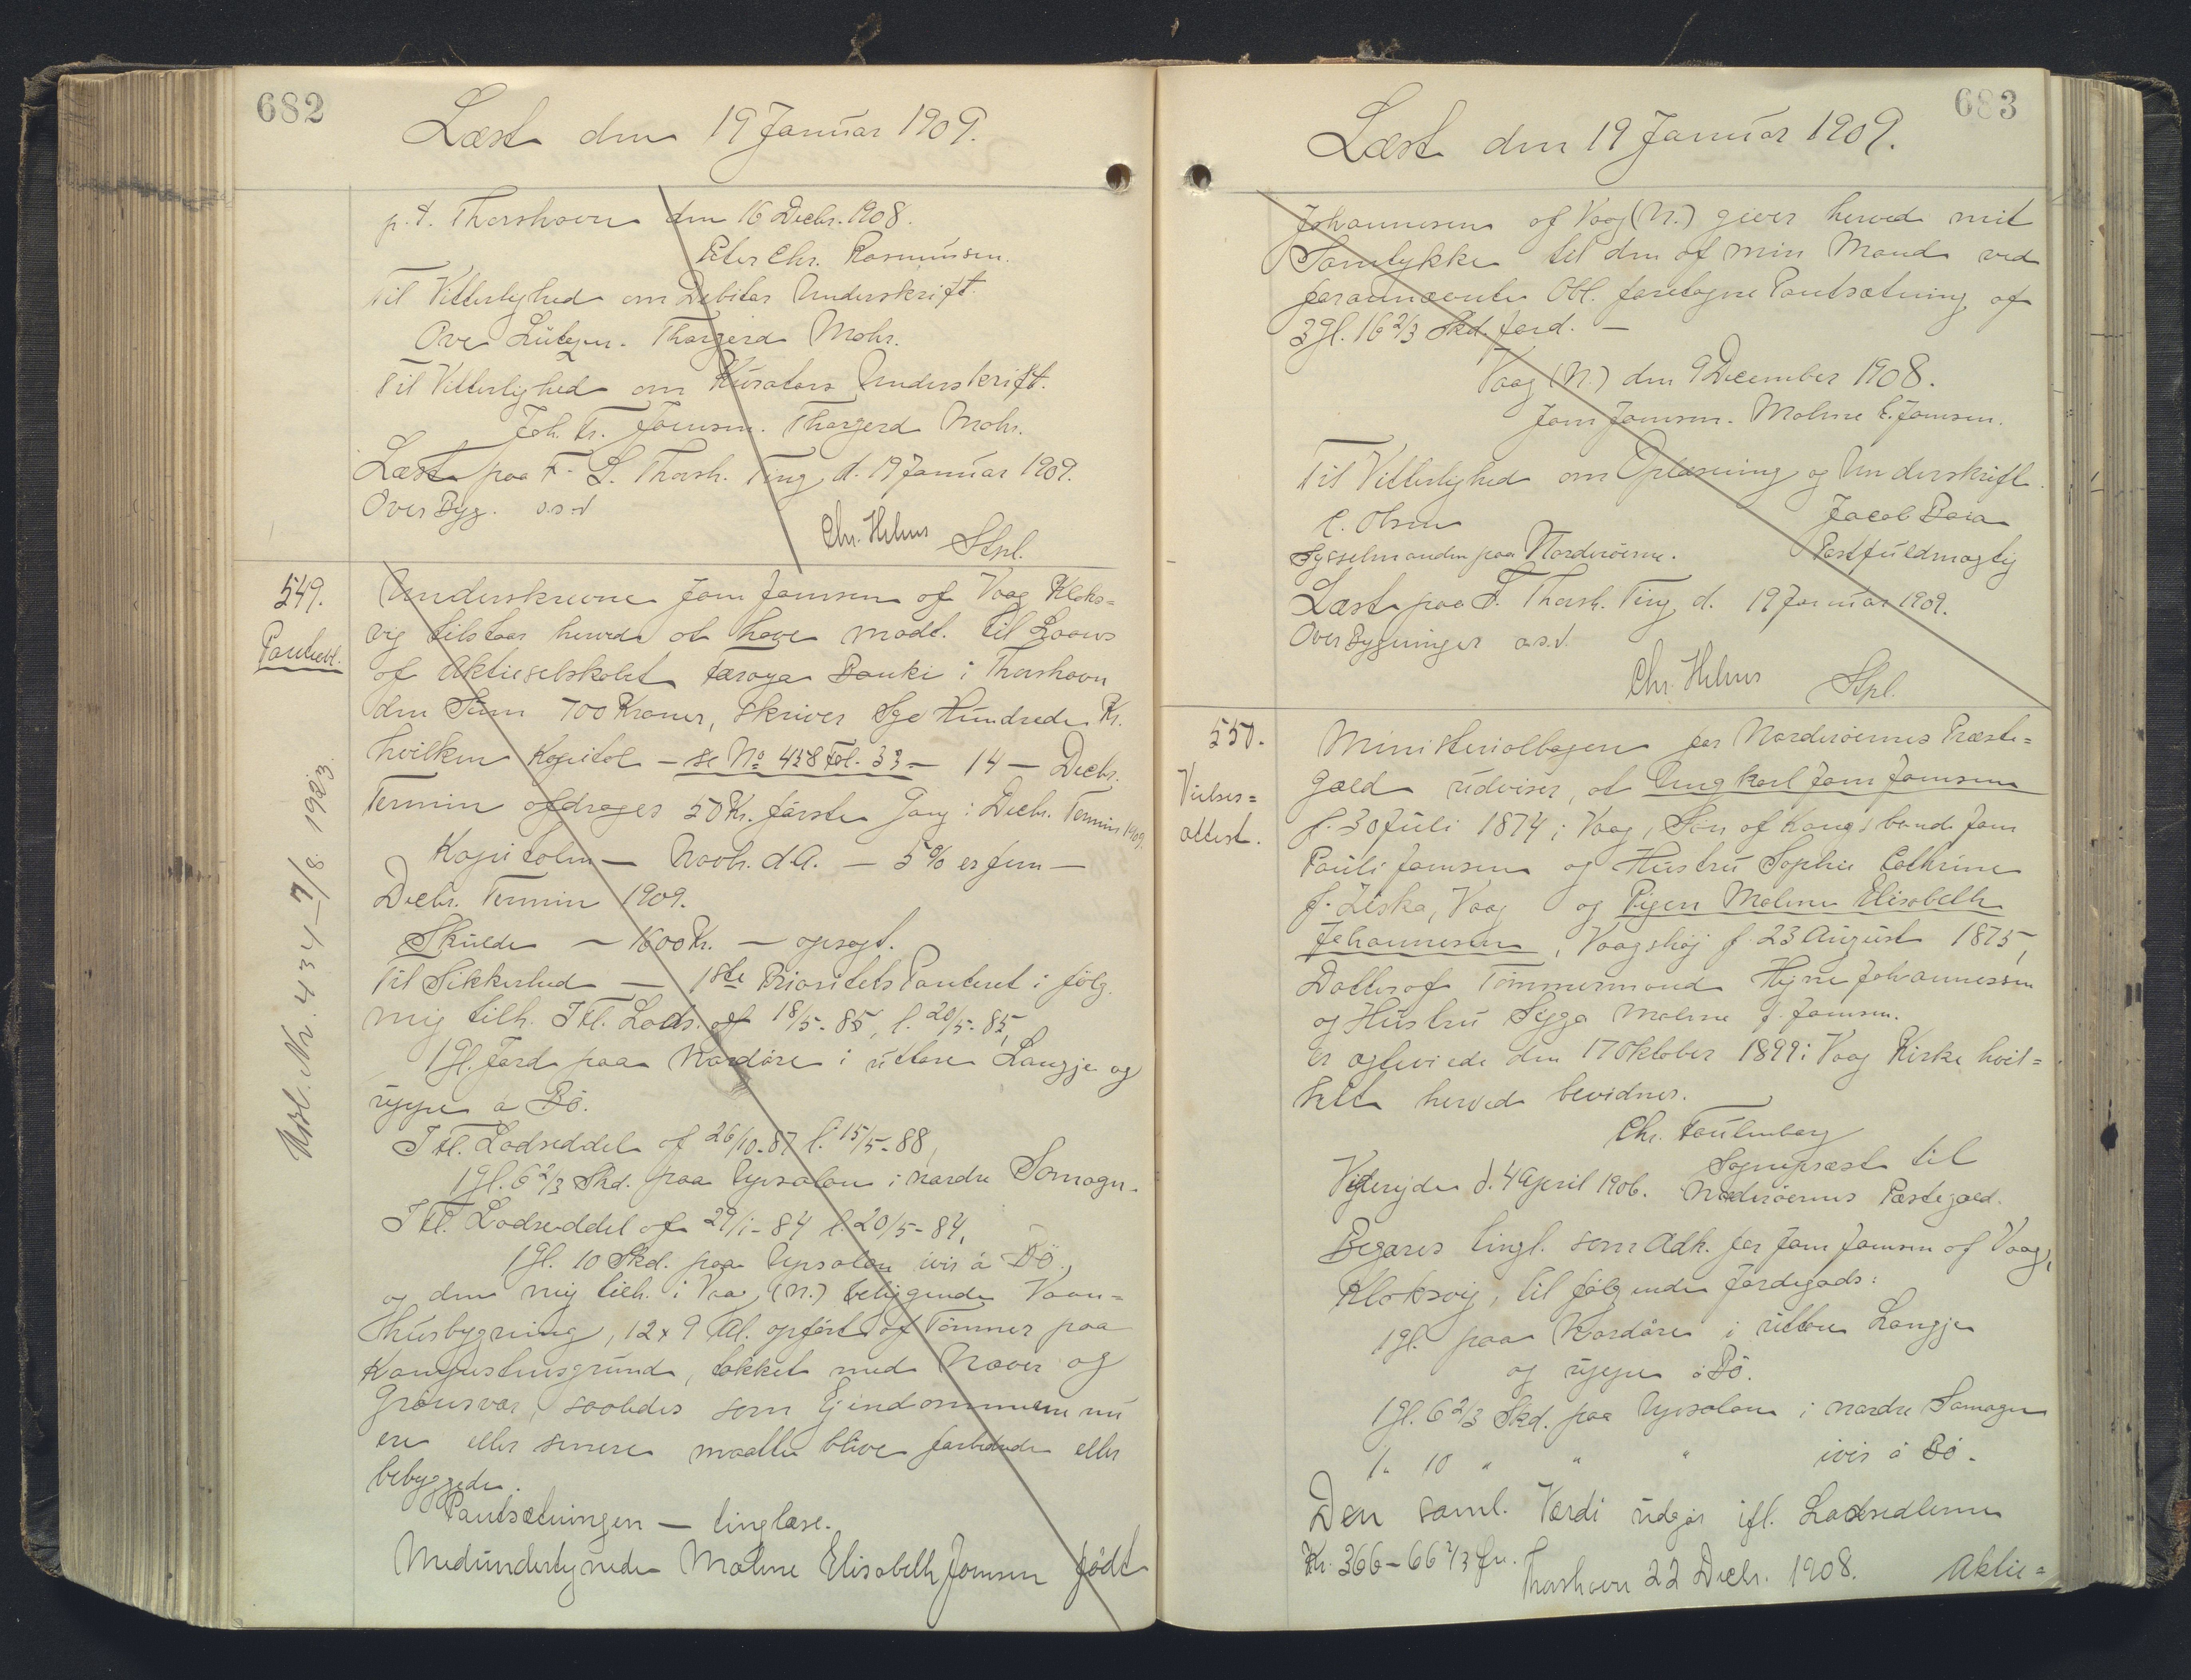 682
Læst den 19 Januar 1909.
p. t. Thorshavn den 16 Decbr. 1908.
Peter Chr. Rasmussen.
Til Vitterlighed om Debitors Underskrift.
Ove Lützen. Thorgerd Mohr.
Til Vitterlighed om Kurators Underskrift.
Joh. Fr. Joensen. Thorgerd Mohr.
Læst paa F. S. Thorsh. Ting d. 19 Januar 1909.
Over Byg. o.s.v
Chr. Helms Stpl.
549.
Panteobl.
Underskrevne Joen Joensen af Vaag Klaks=
vig tilstaar herved at have modt. til Laans
af Aktieselskabet Føroya Banki i Thorshavn
den Sum 700 Kroner, skriver Syv Hundrede Kr.
hvilken Kapital - se No 458 Fol. 33 - 14 - Decbr.
Termin afdrages 50 Kr. første Gang i Decbr. Termin 1909.
Kapitalen - Novbr. d.A. - 5% er fem -
Decbr. Termin 1909.
Skulde - 1600 Kr. - opsagt.
Til Sikkerhed - 1ste Prioritets Panteret i følg.
mig tilh. Ifl. Lods. af 18/5-85, l. 20/5-85,
1 gl. Jord paa Nordøre i uttare Langje og
uppe a Bø.
Ifl. Lodseddel af 26/10-87 l. 15/5-88,
1 gl. 6 2/3 Skd. paa Upsalon i nordre Somogn.
Ifl. Lodseddel af 29/1-84 l. 20/5-84,
1 gl. 10 Skd. paa Upsalon ivir á Bø.,
og den mig tilh. i Vaag (N.) beliggende Vaan=
husbygning, 12 x 9 Al. opført af Tømmer paa
Kongsfæstegrund, tækket med Næver og
Grønsvær, saaledes som Ejendommene nu
ere eller senere maatte blive forbedrede eller
bebyggede.
Pantsætningen - tinglæse.
Medundertegnede Malene Elisabeth Joensen født
Udsl. Nr. 434 - 7/8 1923.
683
Læst den 19 Januar 1909.
Johannesen af Vaag (N.) giver herved mit
Samtykke til den af min Mand ved
forannævnte Obl. foretagne Pantsætning af
3 gl. 16 2/3 Skd. Jord. -
Vaag (N.) den 9 December 1908.
Joen Joensen. Malene E. Joensen.
Til Vitterlighed om Oplæsning og Underskrift.
C. Olsen Jacob Baia
Sysselmanden paa Norderøerne. Postfuldmægtig
Læst paa F. Thorsh. Ting d. 19 Januar 1909.
Over Bygninger o.s.v.
Chr. Helms Stpl.
550.
Vielses=
attest.
Ministerialbogen for Norderøernes Præste=
gæld udviser, at Ungkarl Joen Joensen
f. 30 Juli 1874 i Vaag, Søn af Kongsbonde Joen
Pauli Joensen og Hustru Sophie Cathrine
f. Liska, Vaag og Pigen Malene Elisabeth
Johannesen, Vaagshøj f. 23 August 1875,
Datter af Tømmermand Hejne Johannessen
og Hustru Sigga Malene f. Joensen.
er ægteviede den 17 Oktober 1899 i Vaag Kirke hvil=
ket herved bevidnes.
Chr. Faulenborg
Sognepræst til
Viderejde d. 4 April 1906. Norderøernes Præstegæld.
Begæres tingl. som Adk. for Joen Joensen af Vaag,
Klaksvig, til følgende Jordegods:
1 gl. paa Nordøre i uttare Langje
og uppe á Bø.
1 gl. 6 2/3 Skd. paa Upsalon i nordre Somogn
1 " 10 " " " ivir á Bø.
Den saml. Værdi udgør ifl. Lodsedlerne
Kr. 366-66 2/3 Øre.
Thorshavn 22 Decbr. 1908. Aktie=